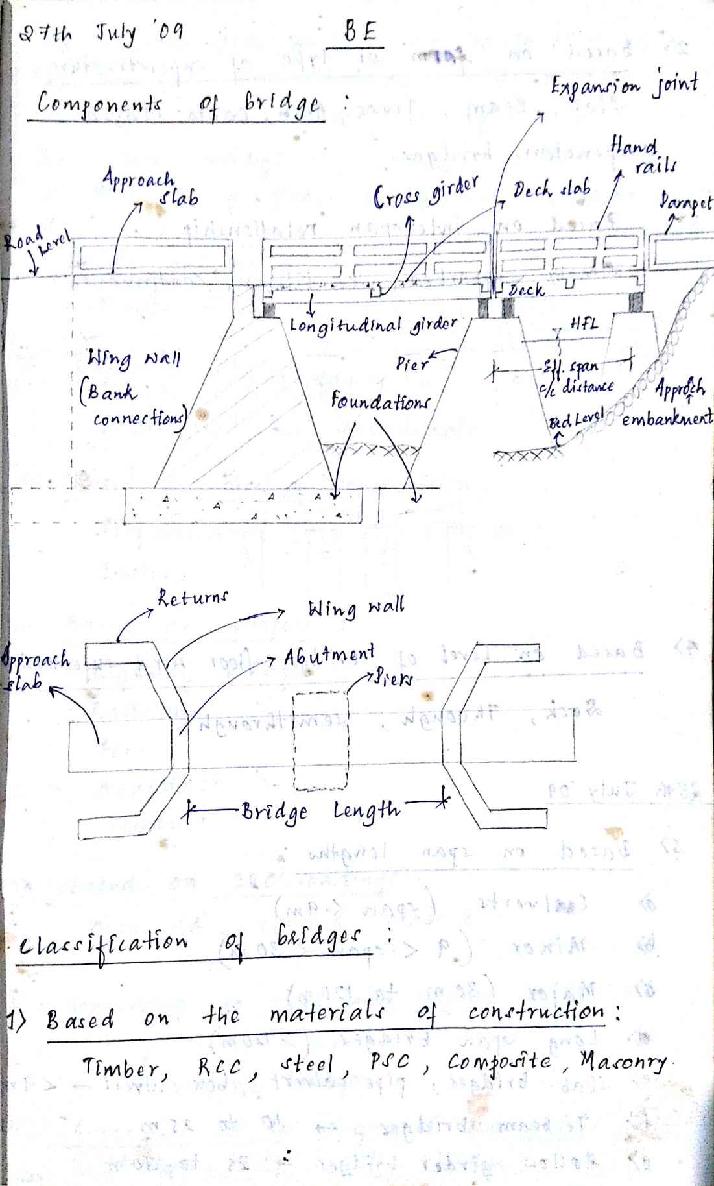 27th July '09
BE
Components of bridge :
Expansion joint
Hand
rails
Approach
slab
Cross girder
Deck slab
Parapet
Road
level
Deck
Longitudinal girder
HFL
Wing wall
(Bank
connections)
Pier
Eff. span
c/c distance
Foundations
Approch
embankment
Bed Level
Returns
Wing wall
Approach
slab
Abutment
Piers
Bridge Length
Classification of bridges :
1) Based on the materials of construction :
Timber, RCC, steel, PSC, Composite, Masonry.